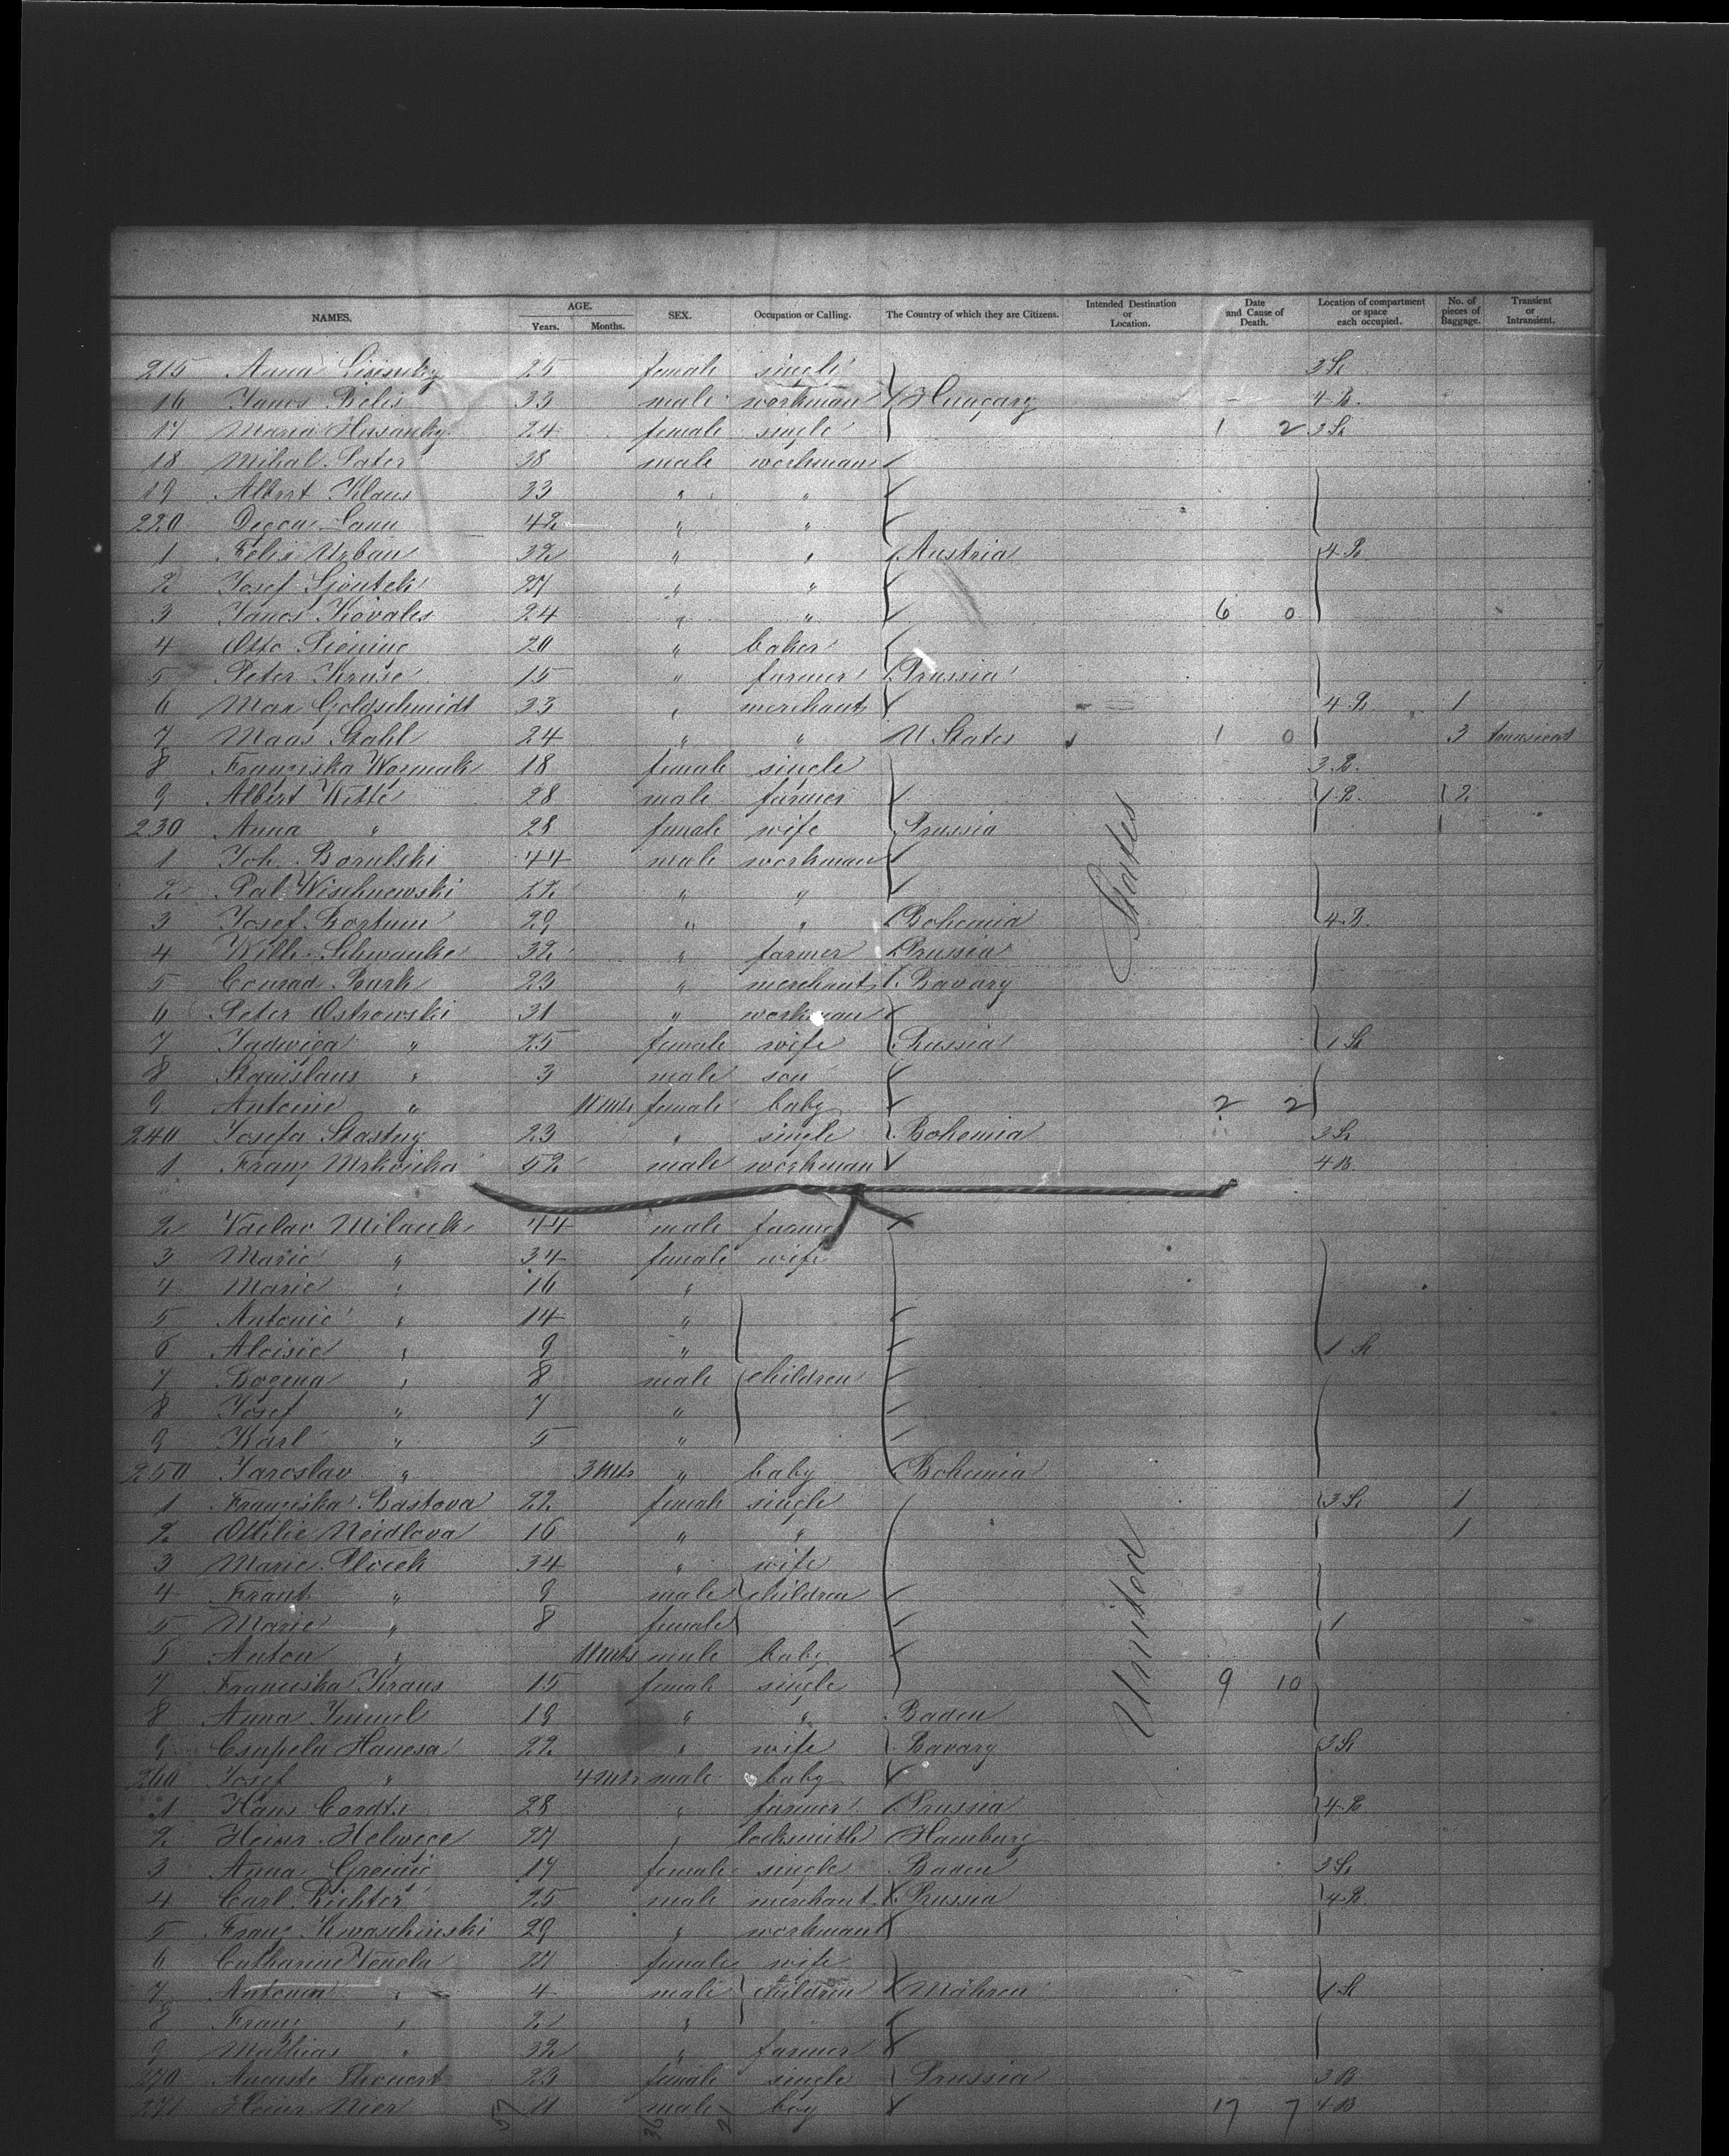 NAMES. AGE. Years. Months. SEX. Occupation or Calling. The Country of which they are Citizens. Intended Destination or Location. Date and Cause of Death. Location of compartment or space each occupied. No. of pieces of Baggage. Transient or Intransient.
215 Anna 25 female single 3 St
16 Janos Belis 33 male workman Hungary 4 B.
17 Maria 24 female single 1 2 3 St
18 Mihal Pater 38 male workman
19 Albert Klaus 33 " "
220 42 " "
1 Felix Urban 32 " " Austria 4 B.
2 Josef 27 " "
3 Janos Kovales 24 " " 6 0
4 Otto 20 " baker
5 Peter Kruse 15 " farmer Prussia
6 Max Goldschmidt 33 " merchant 4 B. 1
7 Maas Stahl 24 " " U States 1 0 3 transient
8 Franziska Wozniak 18 female single 3 B.
9 Albert Witte 28 male farmer 1 B. 2
230 Anna " 28 female wife Prussia
1 Joh. Borulski 44 male workman
2 Pal. Wischnewski 22 " "
3 Josef Bortum 29 " " Bohemia 4 B.
4 Wilh. Schwanke 32 " farmer Prussia
5 Conrad Burk 23 " merchant Bavary
6 Peter Ostrowski 31 " workman
7 Jadwiga " 25 female wife Russia 1 St
8 Stanislaus " 3 male son
9 Antonie " 11 mths female baby 2 2
240 Josefa Stastny 23 " single Bohemia 3 St
1 Franz 52 male workman 4 B.
2 Vaclav Milacek 44 male farmer
3 Marie " 34 female wife
4 Marie " 16 "
5 Antonie " 14 "
6 Aloisie " 9 " 1 St
7 Bozena " 8 male children
8 Josef " 7 "
9 Karl " 5 "
250 Jaroslav " 3 mths " baby Bohemia
1 Franziska Bastova 22 female single 3 St 1
2 Ottilie Neidlova 16 " " 1
3 Marie Plocek 34 " wife
4 Frant " 9 male children
5 Marie " 8 female 1
6 Anton " 11 mths male baby
7 Franziska Kraus 15 female single 9 10
8 Anna 19 " " Baden
9 Csupela Hanesa 22 " wife Bavary 3 St
260 Josef " 4 mths male baby
1 Hans Cordts 28 " farmer Prussia 4 B.
2 Heinr. Helwege 27 " locksmith Hamburg
3 Anna 17 female single Baden 3 St
4 Carl Richter 25 male merchant Prussia 4 B.
5 Franz 29 " workman
6 Catharine 27 female wife
7 Antonin " 4 male children Mähren 1 St
8 Franz " 2 "
9 Mathias " 32 " farmer
270 Auguste 23 female single Prussia 3 B
271 Heinr. Nier 11 male boy 17 7 4 B
United States
57 36 21